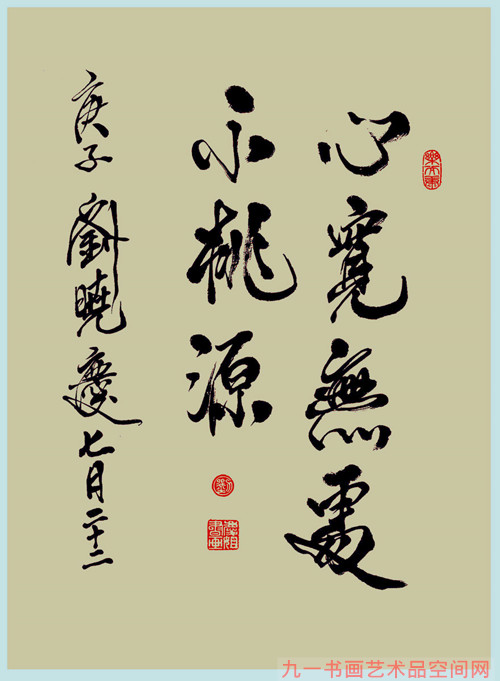 心寬無處
不桃源
庚子劉曉慶七月二十二
九一书画艺术品空间网